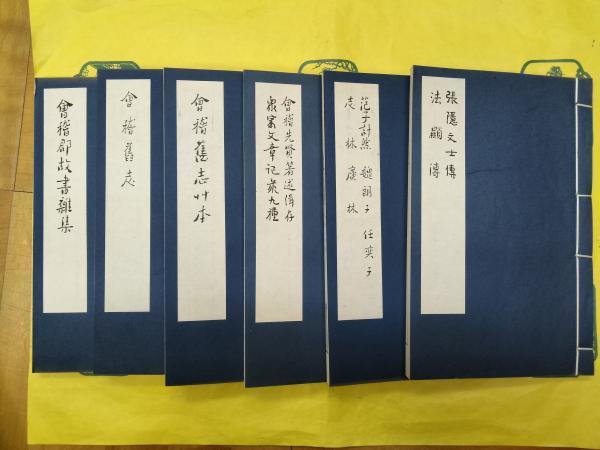 張隱文士傳
法顯傳
范子計然 魏朗子 任奕子
志林 廣林
會稽先賢著述輯存
衆家文章記錄九種
會稽舊志艸本
會稽舊志
會稽郡故書雜集